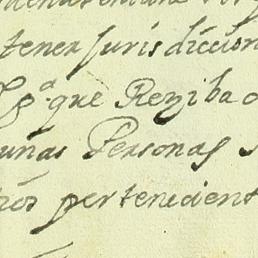 tener Juris diccion
pa. que Reziba
unas Personas
pertenecient